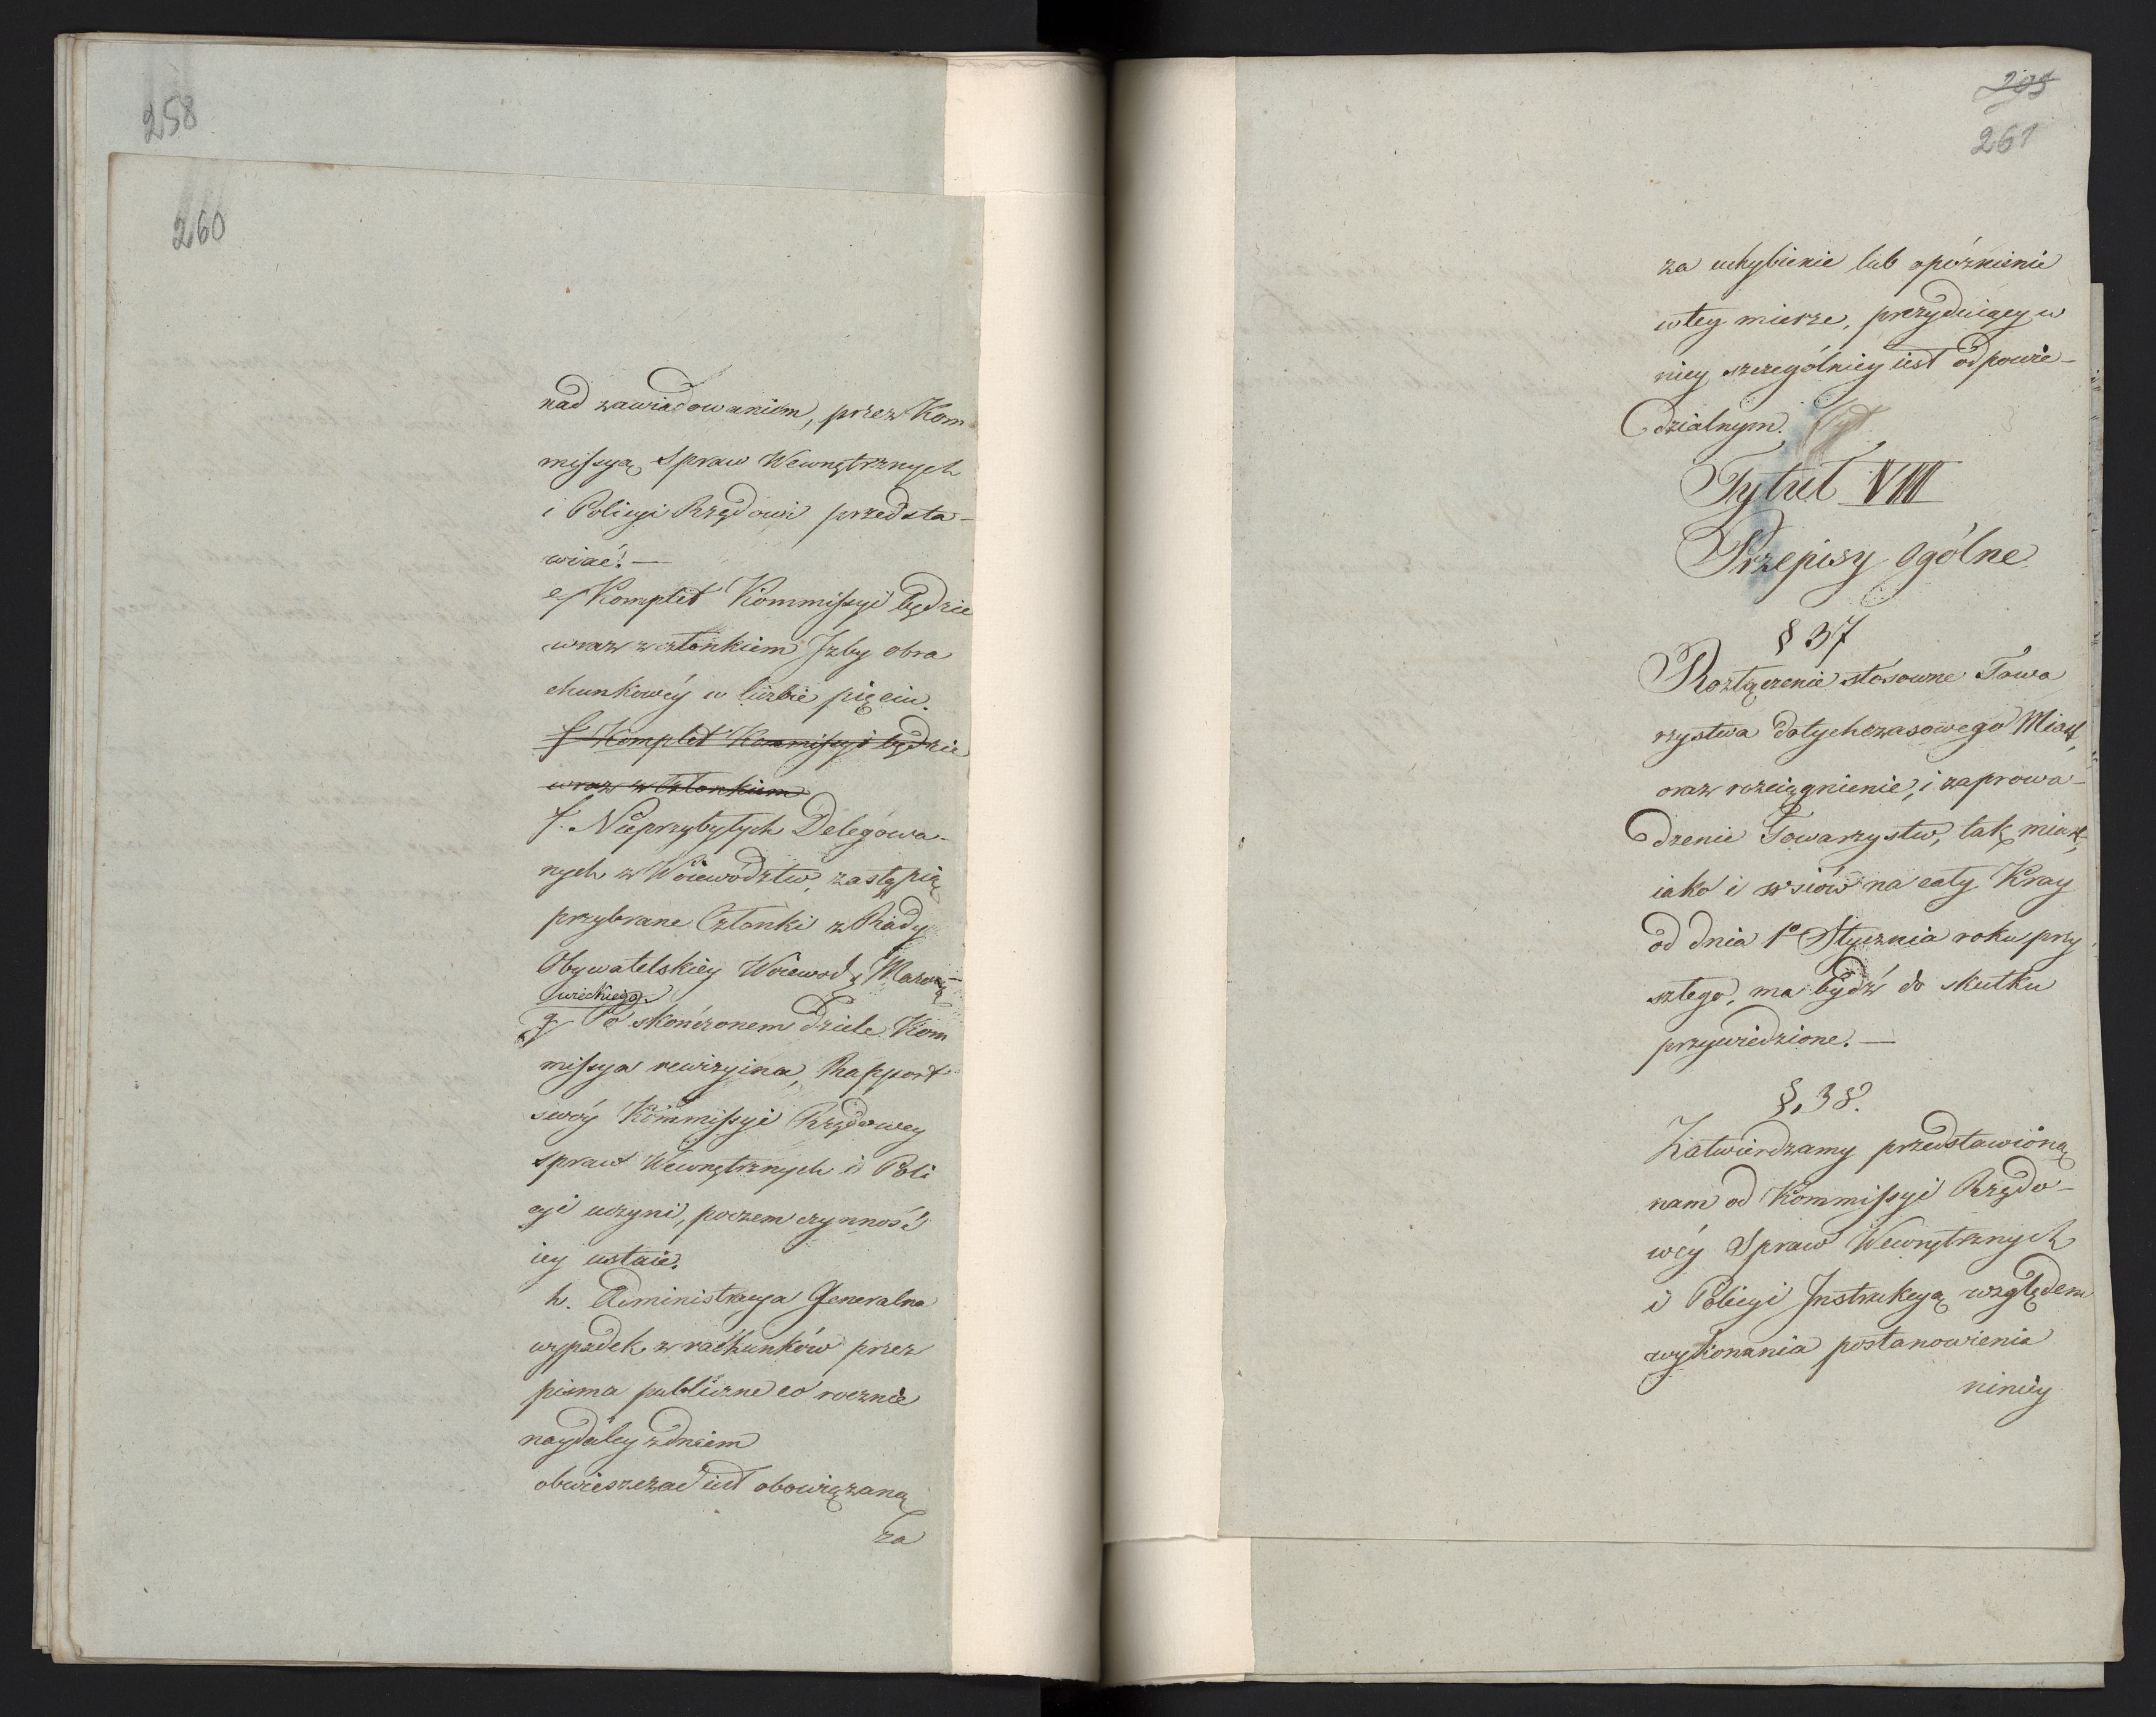 258
260
nad zawiadowaniem, przez Kom
missyą Spraw Wewnętrznych
i Policyi Rządowi przedsta-
wiać. —
e/ Komplet Kommissyi będzie
wraz z członkiem Izby obra
chunkowéy w liczbie pięciu.
f Komplet Kommissyi będzie
wraz z Członkiem
f. Nieprzybyłych Delegowa-
nych z Woiewództw, zastąpią
przybrane Członki z Rady
Obywatelskiey Woiewod: Mazo-
wieckiego.
g/ Po skończonem dziele Kom
missya rewizyina, Rapport
swóy Kommissyi Rządowey
spraw Wewnętrznych i Poli
cyi uczyni, poczem czynność
iey ustaie.
h. Administracya Generalna
wypadek z rachunków przez
pisma publiczne co rocznie
naydaley z dniem
obwieszczać iest obowiązaną
za
261
za uchybienie lub opóźnienie
w tey mierze, prezyduiący w
niey szczególniey iest odpowie-
dzialnym.
Tytuł VIII
Przepisy Ogólne
§ 37
Rozłączenie stósowne Towa
rzystwa dotychczasowego Miast,
oraz rozciągnienie, i zaprowa-
dzenie Towarzystw, tak miast,
iako i wsiów na cały Kray
od dnia 1º Stycznia roku przy
szłego, ma bydź do skutku
przywiedzione. —
§. 38.
Zatwierdzamy przedstawioną
nam od Kommissyi Rządo-
wéy Spraw Wewnętrznych
i Policyi Instrukcyą względem
wykonania postanowienia
niniey